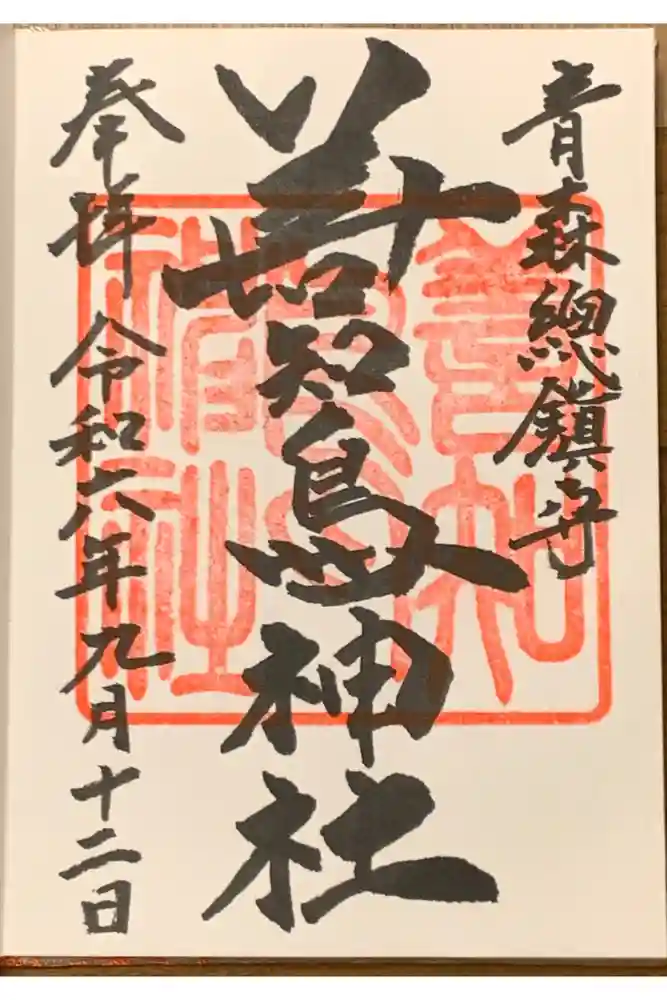 青森總鎮守
善知鳥神社
奉拝 令和六年九月十二日
善知
鳥神
社